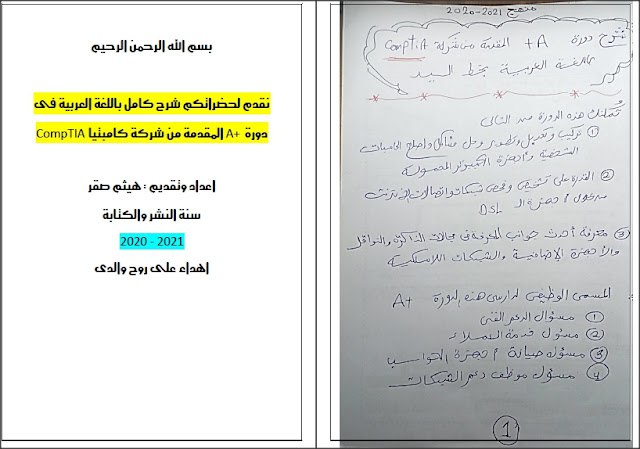 بسم الله الرحمن الرحيم
نقدم لحضراتكم شرح كامل باللغة العربية فى
دورة +A المقدمة من شركة كامبتيا CompTIA
اعداد وتقديم : هيثم صقر
سنة النشر والكتابة
2020 - 2021
اهداء على روح والدى
منهج 2021-2020
شرح دورة A+ المقدمة من شركة CompTIA
باللغة العربية بخط اليد
تُمكنك هذه الدورة من التالى
① تركيب وتعديل وتطوير وحل مشاكل وإصلاح الحاسبات
الشخصية وأجهزة الكمبيوتر المحمولة
② القدرة على تشخيص وفحص شبكات واتصالات الإنترنت
أجهزة الـ DSL
③ معرفة أحدث جوانب المعرفة فى مجالات الذاكرة والنواقل
والأجهزة الإضافية والشبكات اللاسلكية
المسمى الوظيفى لدارسى هذه الدورة A+
① مسئول الدعم الفنى
② مسئول خدمة العملاء
③ مسئول صيانة أجهزة الحواسب
④ مسئول موظف دعم الشبكات
1